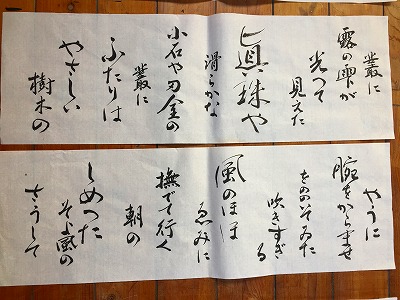 叢に
露の雫が
光つて
見えた
眞珠や
滑らかな
小石や刃金の
叢に
ふたりは
やさしい
樹木の
やうに
腕をからませ
をののいてゐた
吹きすぎる
風のほほ
ゑみに
撫でて行く
朝の
しめつた
そよ風の
さうして